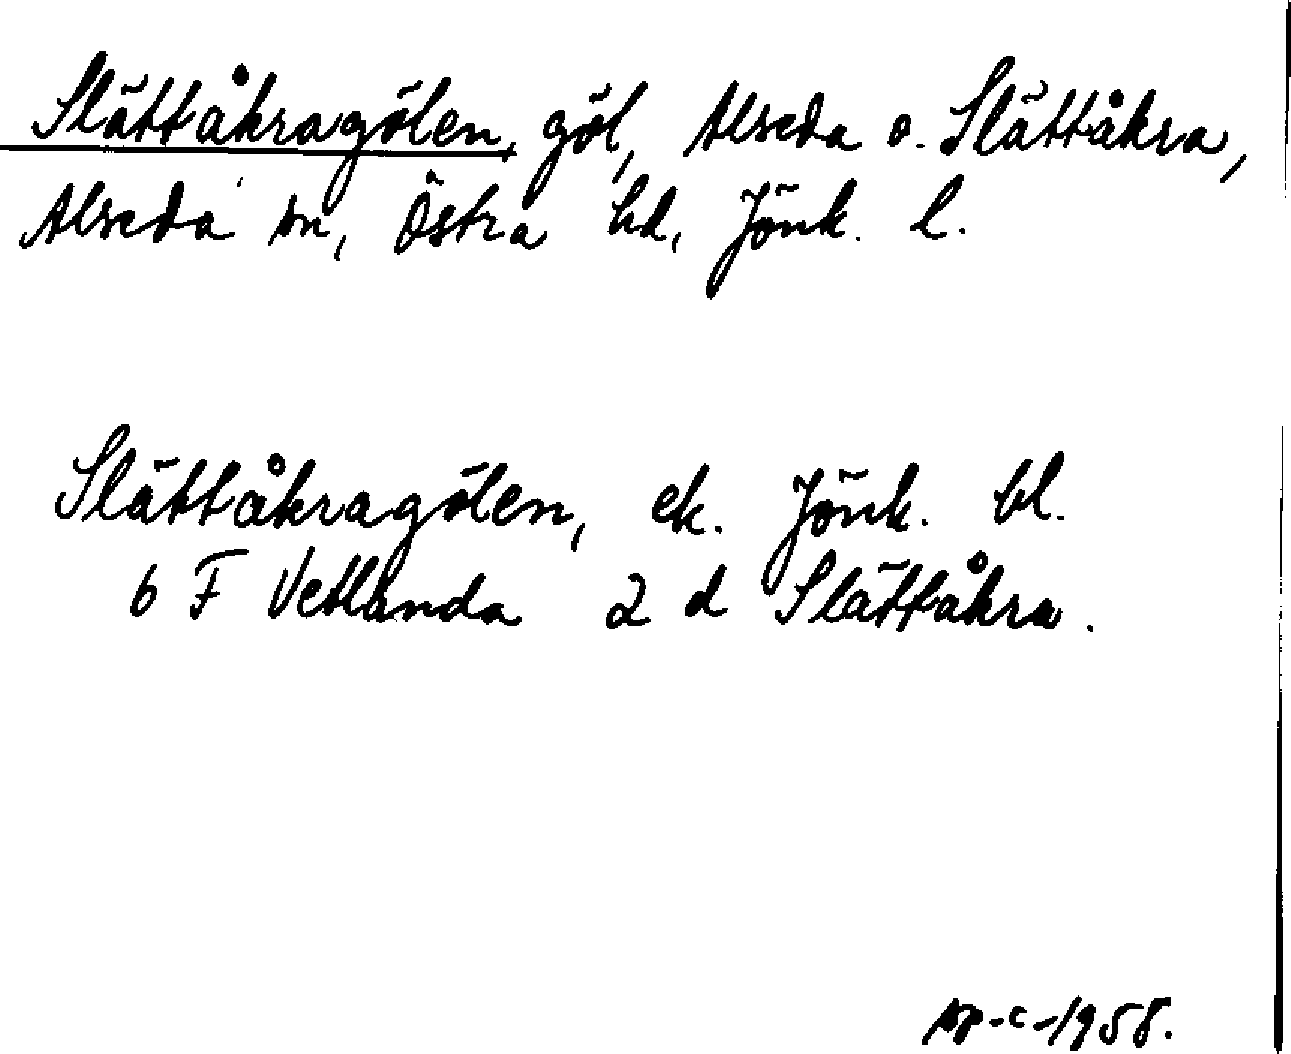 Slättåkragölen, göl, Alseda o. Slättåkra,
Alseda sn, Östra hd, Jönk. l.
Slättåkragölen, ek. Jönk. bl.
6 F Vetlanda 2 d Slättåkra.
-c-1958.